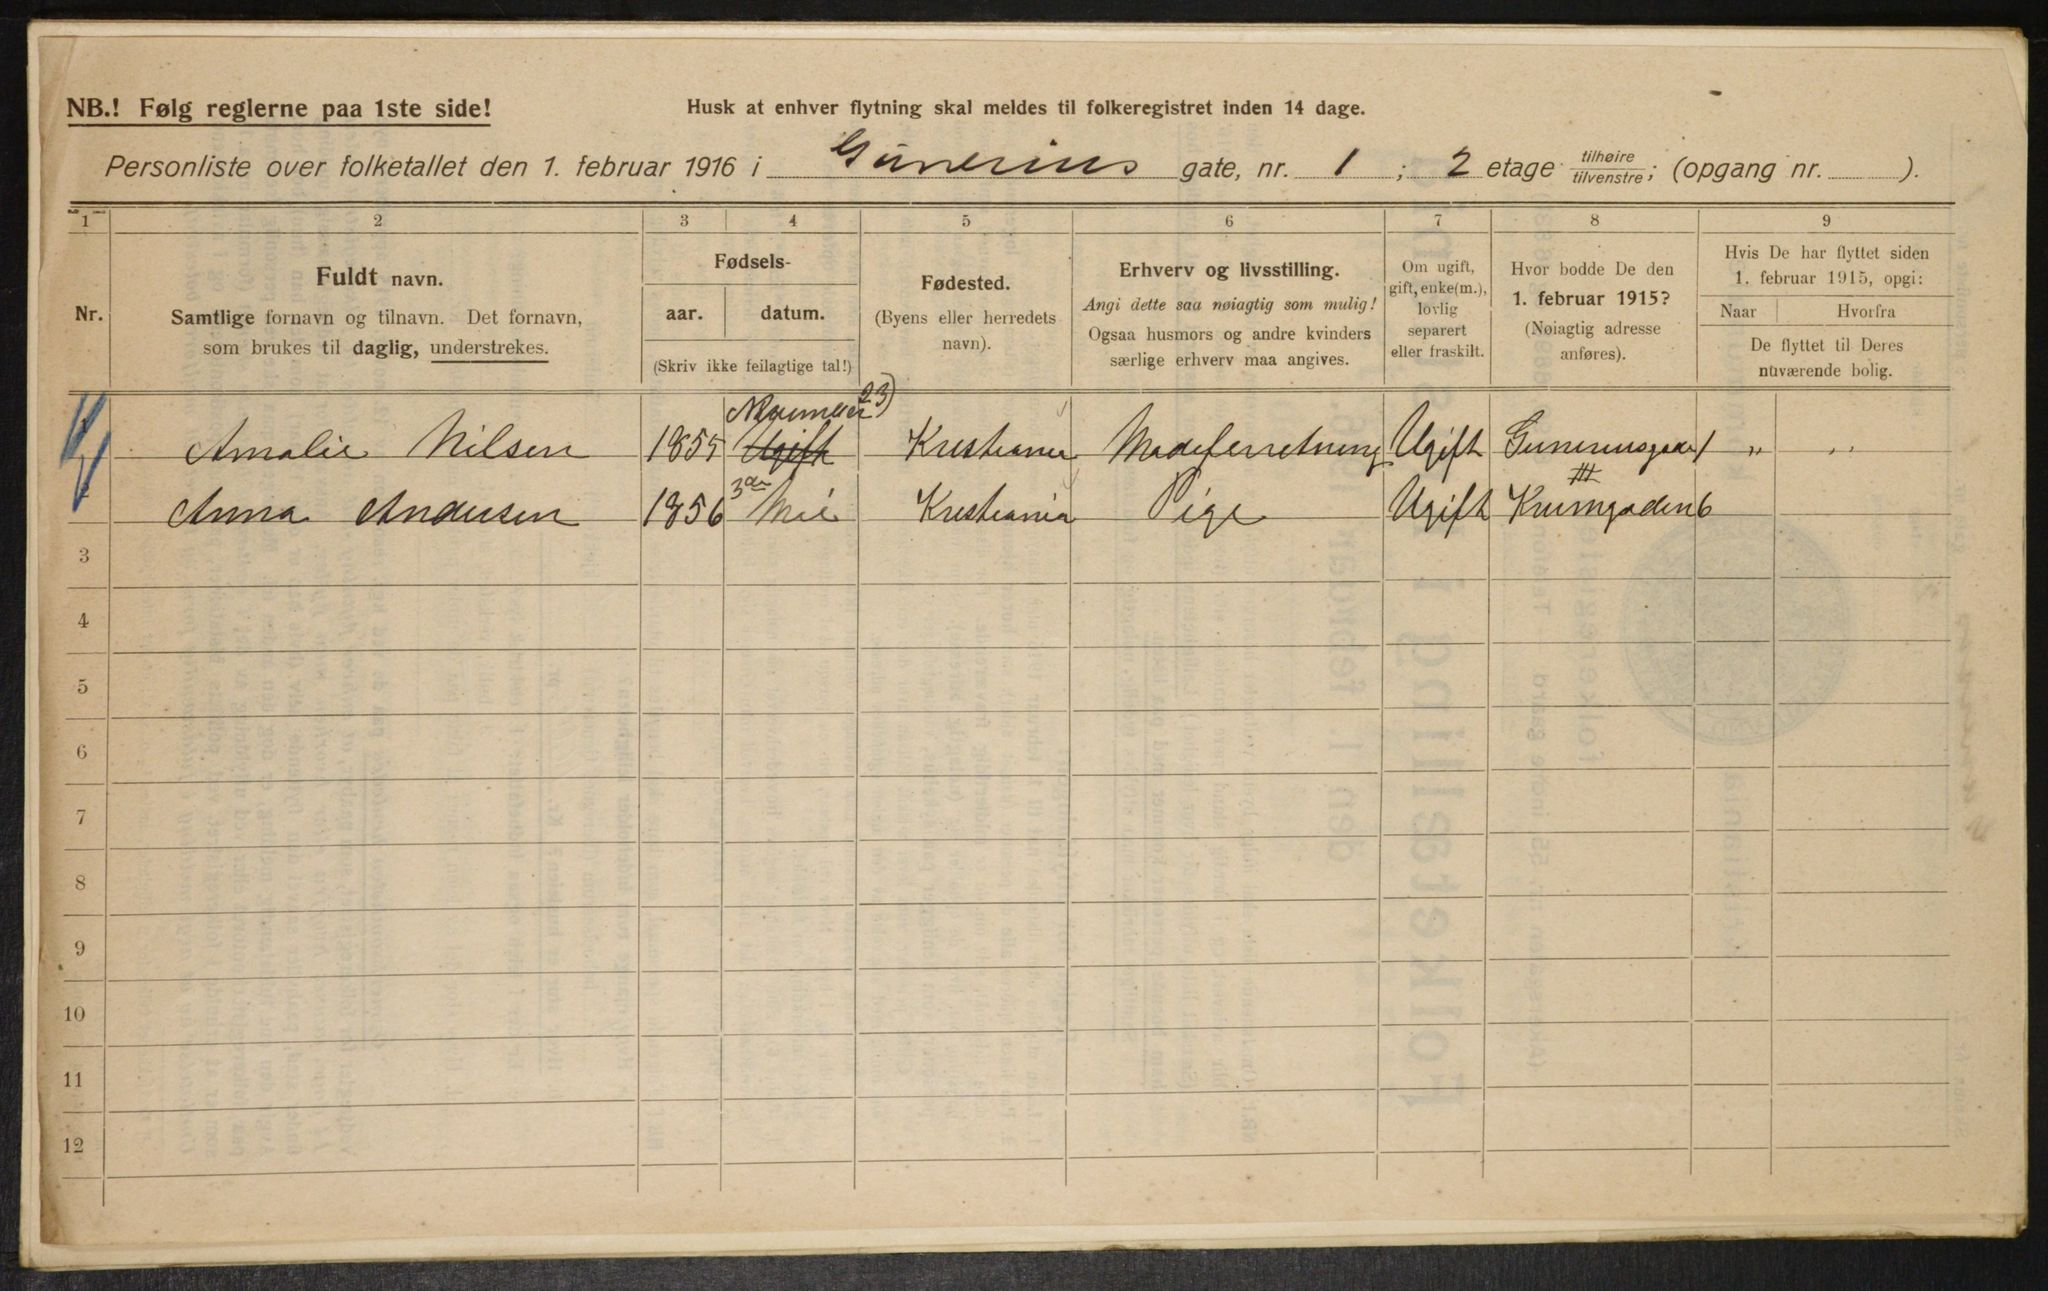 NB.! Følg reglerne paa 1ste side!
Husk at enhver flytning skal meldes til folkeregistret inden 14 dage.
Personliste over folketallet den 1. februar 1916 i Gunerius gate, nr. 1 ; 2 etage tilhøire / tilvenstre; (opgang nr. ).
1 2 3 4 5 6 7 8 9
Nr.
Fuldt navn.
Samtlige fornavn og tilnavn. Det fornavn,
som brukes til daglig, understrekes.
Fødsels-
aar. datum.
(Skriv ikke feilagtige tal!)
Fødested.
(Byens eller herredets
navn).
Erhverv og livsstilling.
Angi dette saa nøiagtig som mulig!
Ogsaa husmors og andre kvinders
særlige erhverv maa angives.
Om ugift,
gift, enke(m.),
lovlig
separert
eller fraskilt.
Hvor bodde De den
1. februar 1915?
(Nøiagtig adresse
anføres).
Hvis De har flyttet siden
1. februar 1915, opgi:
Naar Hvorfra
De flyttet til Deres
nuværende bolig.
23)
Amalie Nilsen 1855 Ugift Kristiania Modeforretning Ugift Guneriusgaden 1 " "
III
Anna Andersen 1856 3die Mai Kristiania Pige Ugift Krumgaden 6
3
4
5
6
7
8
9
10
11
12